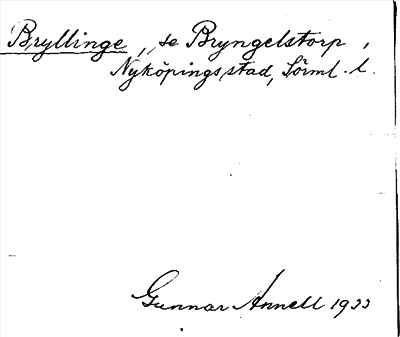 Bryllinge, se Bryngelstorp,
Nyköpings stad, Sörml. l.
Gunnar Annell 1933